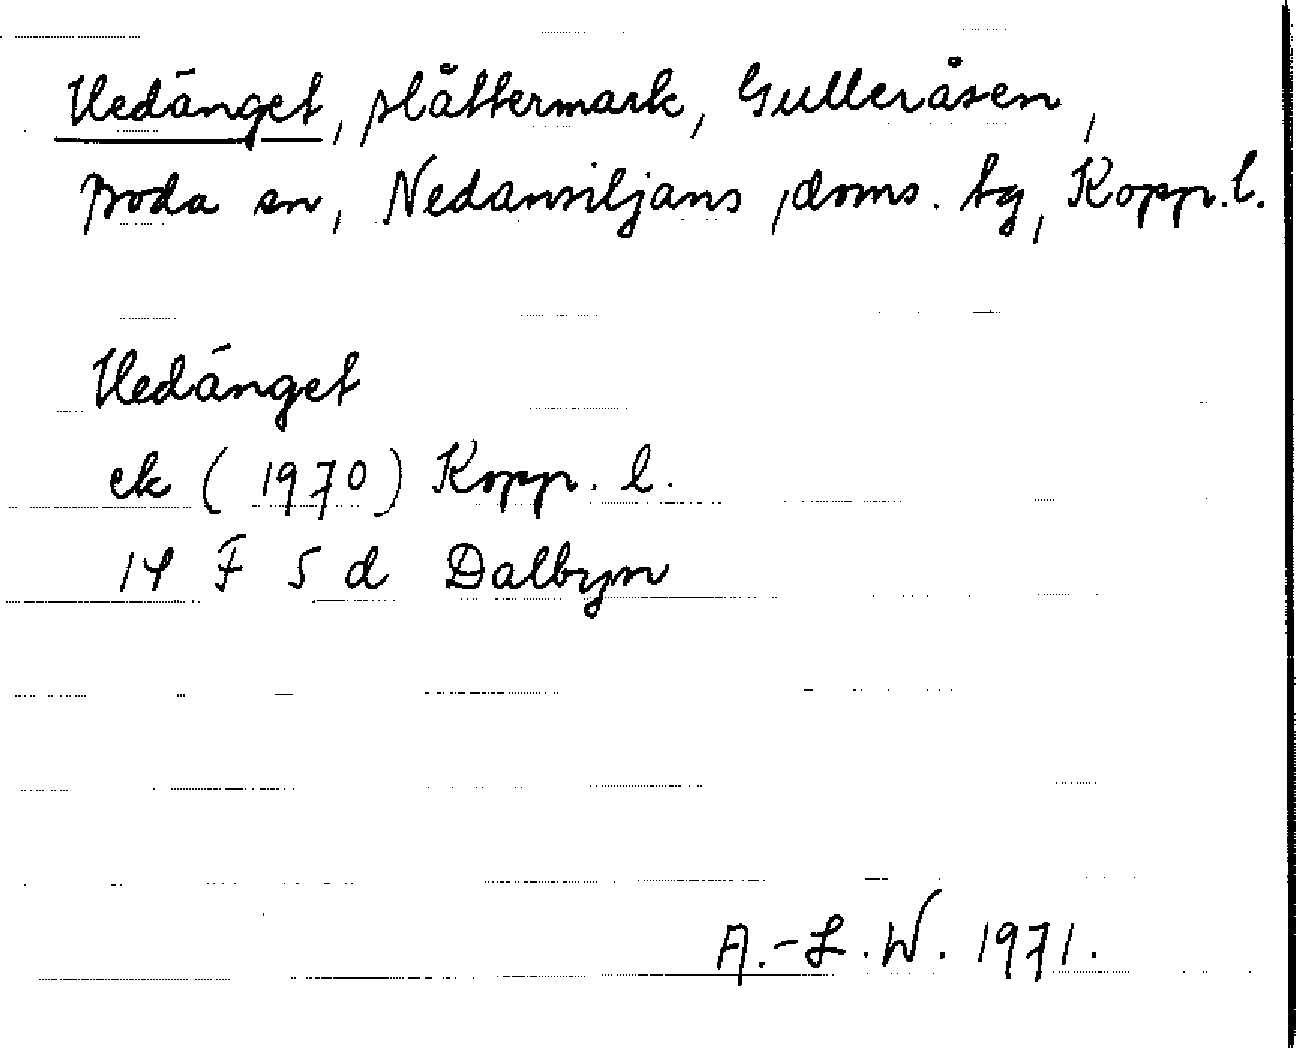 Vedänget, slåttermark, Gulleråsen,
Boda sn, Nedansiljans doms. tg, Kopp. l.
Vedänget
ek (1970) Kopp. l.
14 F 5 d Dalbyn
A.-L. W. 1971.